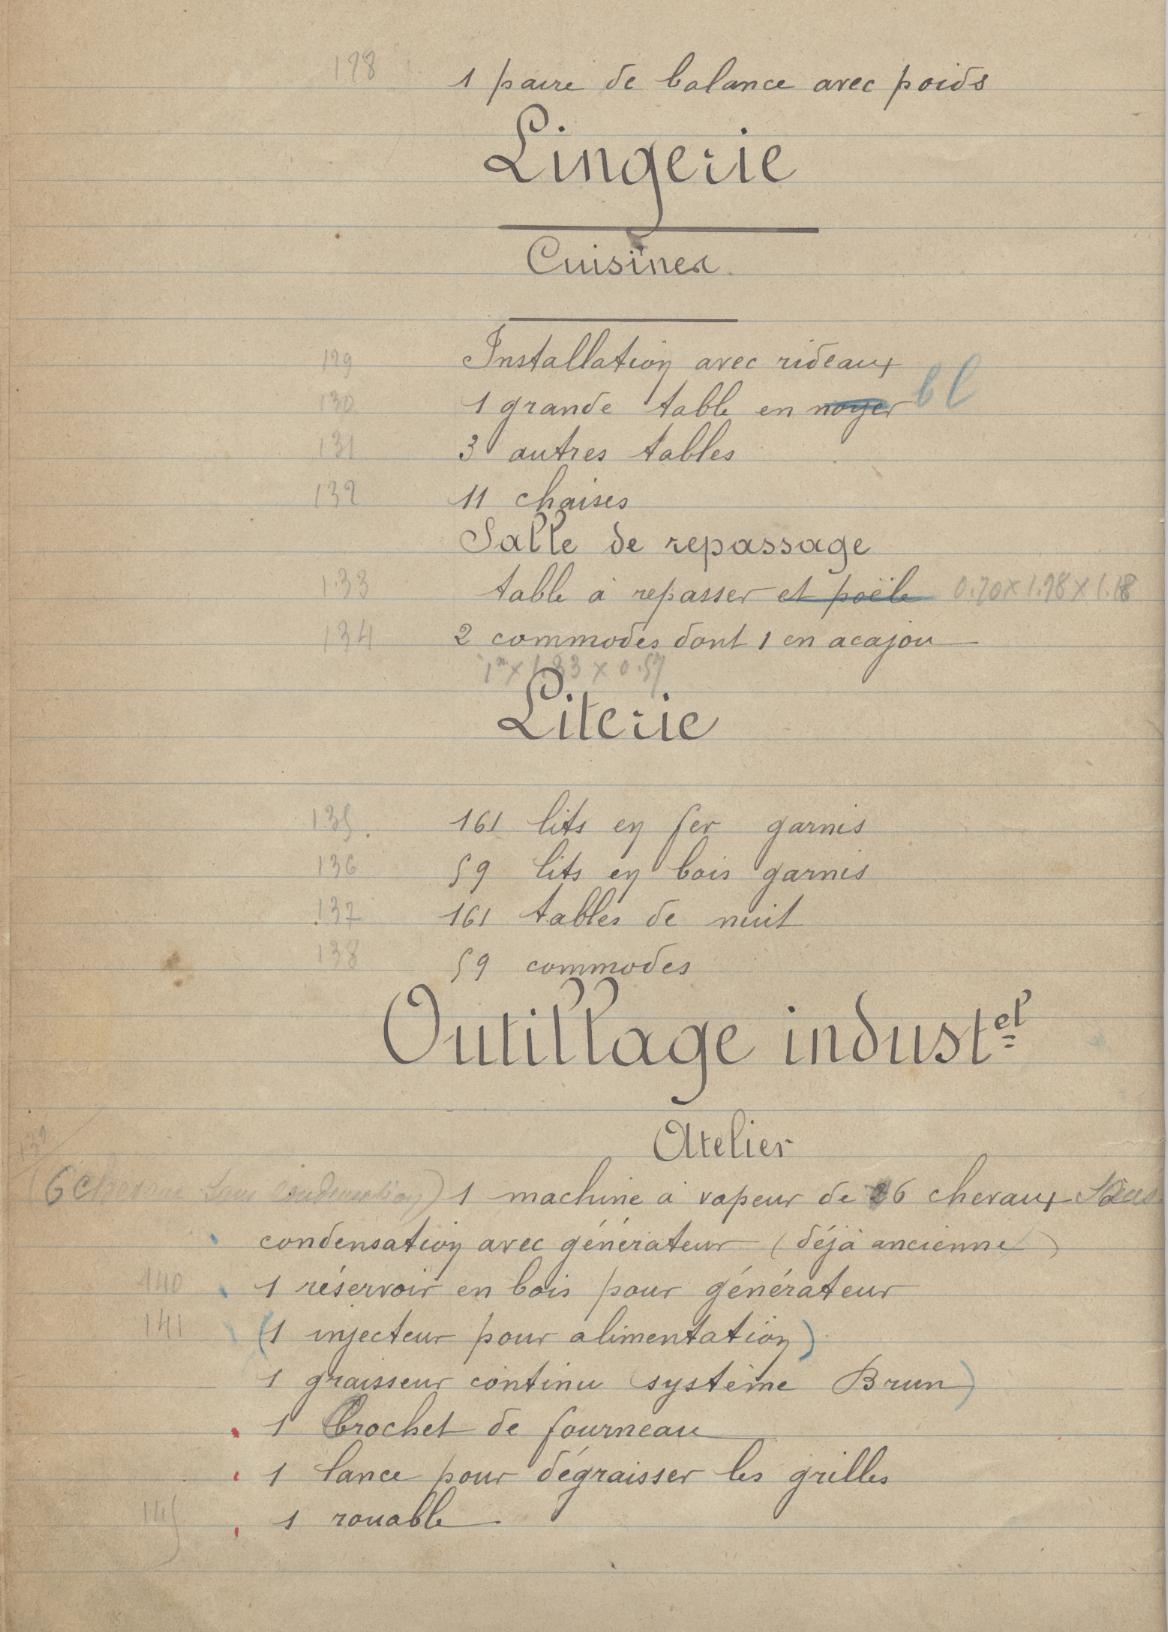 128 1 paire de balance avec poids
Lingerie
Cuisines
129 Installation avec rideaux
130 1 grande table en noyer bl
131 3 autres tables
132 11 chaises
Salle de repassage
133 table à repasser et poële 0.70 x 1.98 x 1.18
134 2 commodes dont 1 en acajou
1m x 1.33 x 0.57
Literie
135. 161 lits en fer garnis
136 59 lits en bois garnis
137 161 tables de nuit
138 59 commodes
Outillage indust el
Atelier
139
(6 chevaux sans condensation) 1 machine à vapeur de 6 chevaux sans
condensation avec générateur (déjà ancienne)
140 1 réservoir en bois pour générateur
141 (1 injecteur pour alimentation)
1 graisseur continu système Brun)
1 Crochet de fourneau
1 lance pour dégraisser les grilles
145 1 rouable